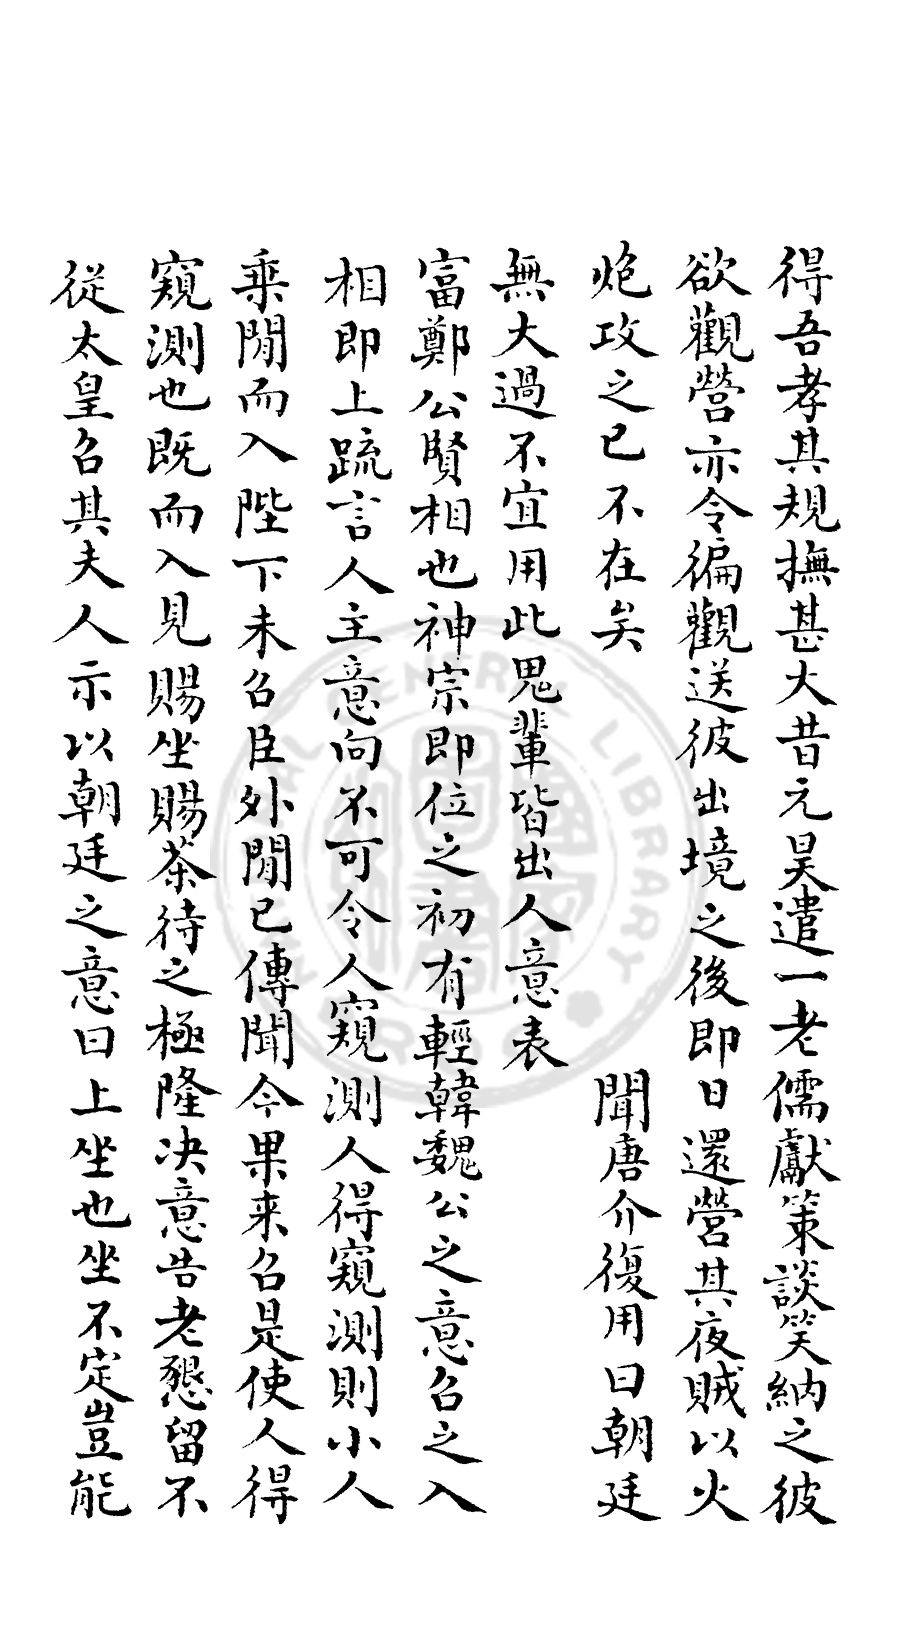 得吾孝其規撫甚大昔元昊遣一老儒獻策談笑納之彼
欲觀營亦令徧觀送彼出境之後即日還營其夜賊以火
炮攻之已不在矣　聞唐介復用曰朝廷
無大過不宜用此鬼輩皆出人意表
富鄭公賢相也神宗即位之初有輕韓魏公之意召之入
相即上疏言人主意向不可令人窺測人得窺測則小人
乗閒而入陛下未召臣外閒已傳聞今果来召是使人得
窺測也既而入見賜坐賜茶待之極隆决意告老懇留不
從太皇召其夫人示以朝廷之意曰上坐也坐不定豈能